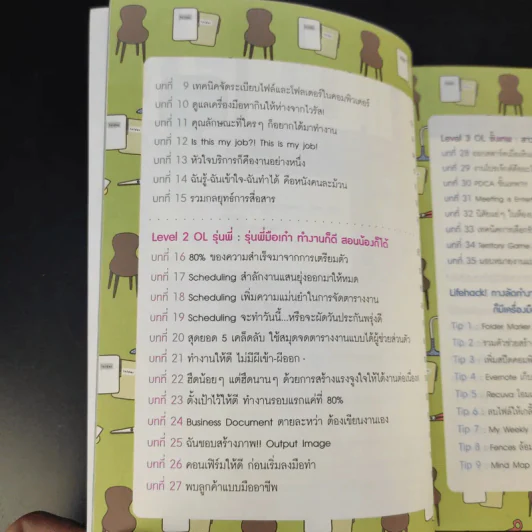 บทที่ 9 เทคนิคจัดระเบียบไฟล์และโฟลเดอร์ในคอมพิวเตอร์
บทที่ 10 ดูแลเครื่องมือหากินให้ห่างจากไวรัส!
บทที่ 11 คุณลักษณะที่ใครๆ ก็อยากได้มาทำงาน
บทที่ 12 Is this my job?! This is my job!
บทที่ 13 หัวใจบริการก็คืองานอย่างหนึ่ง
บทที่ 14 ฉันรู้-ฉันเข้าใจ-ฉันทำได้ คือหนังคนละม้วน
บทที่ 15 รวมกลยุทธ์การสื่อสาร
Level 2 OL รุ่นพี่ : รุ่นพี่มือเก๋า ทำงานก็ดี สอนน้องก็ได้
บทที่ 16 80% ของความสำเร็จมาจากการเตรียมตัว
บทที่ 17 Scheduling สำลักงานแสนยุ่งออกมาให้หมด
บทที่ 18 Scheduling เพิ่มความแม่นยำในการจัดตารางงาน
บทที่ 19 Scheduling จะทำวันนี้...หรือจะผัดวันประกันพรุ่งดี
บทที่ 20 สุดยอด 5 เคล็ดลับ ใช้สมุดจดตารางงานแบบได้ผู้ช่วยส่วนตัว
บทที่ 21 ทำงานให้ดี ไม่มีผีเข้า-ผีออก
บทที่ 22 ฮึดน้อยๆ แต่ฮึดนานๆ ด้วยการสร้างแรงจูงใจให้ได้งานต่อเนื่อง
บทที่ 23 ตั้งเป้าไว้ให้ดี ทำงานรอบแรกแค่ที่ 80%
บทที่ 24 Business Document ตายละหว่า ต้องเขียนงานเอง
บทที่ 25 ฉันชอบสร้างภาพ!! Output Image
บทที่ 26 คอนเฟิร์มให้ดี ก่อนเริ่มลงมือทำ
บทที่ 27 พบลูกค้าแบบมืออาชีพ
Level 3 OL
บทที่ 28
บทที่ 29
บทที่ 30 PDCA
บทที่ 31 Meeting
บทที่ 32
บทที่ 33
บทที่ 34
บทที่ 35
Lifehack!
Tip 1 : Folder Marker
Tip 2 :
Tip 3 :
Tip 4 : Evernote
Tip 5 : Recuva
Tip 6 :
Tip 7 : My Weekly
Tip 8 : Fences
Tip 9 : Mind Map